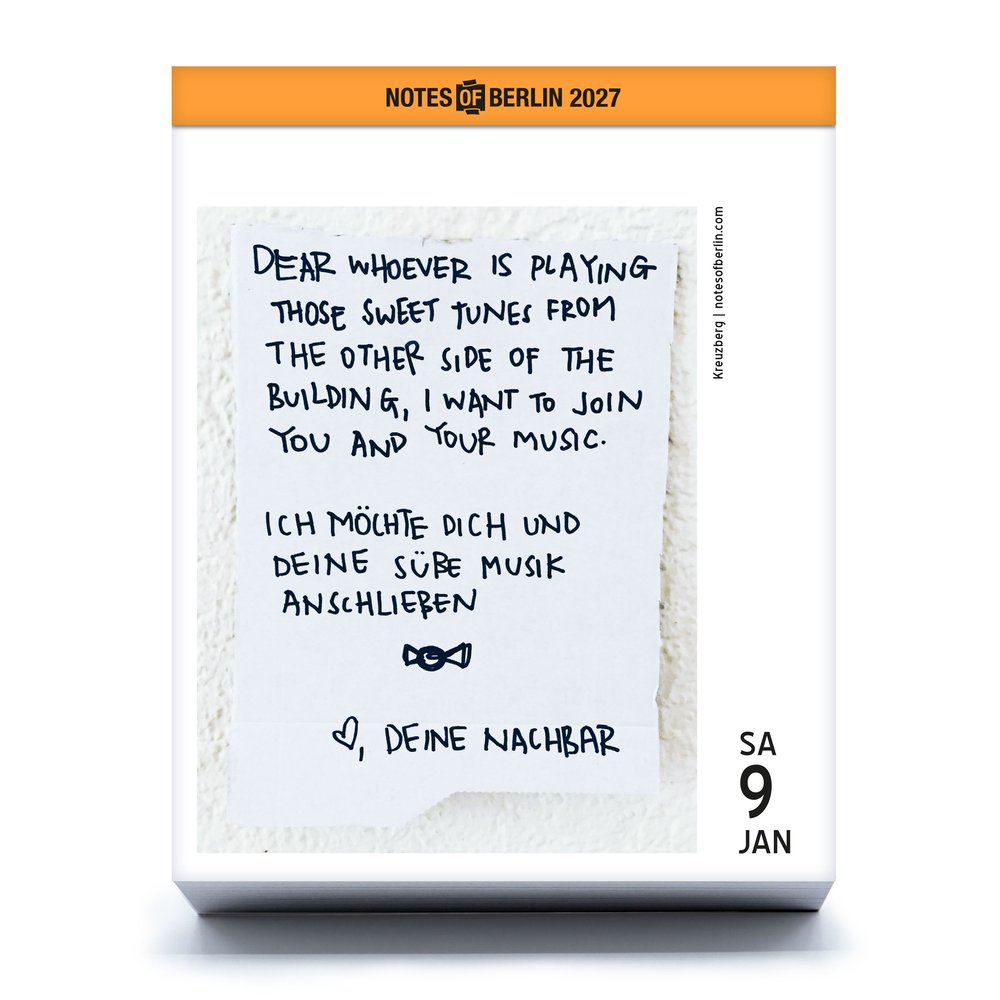 NOTES OF BERLIN 2027
Kreuzberg | notesofberlin.com
DEAR WHOEVER IS PLAYING
THOSE SWEET TUNES FROM
THE OTHER SIDE OF THE
BUILDING, I WANT TO JOIN
YOU AND YOUR MUSIC.
ICH MÖCHTE DICH UND
DEINE SÜßE MUSIK
ANSCHLIEßEN
♡, DEINE NACHBAR
SA
9
JAN